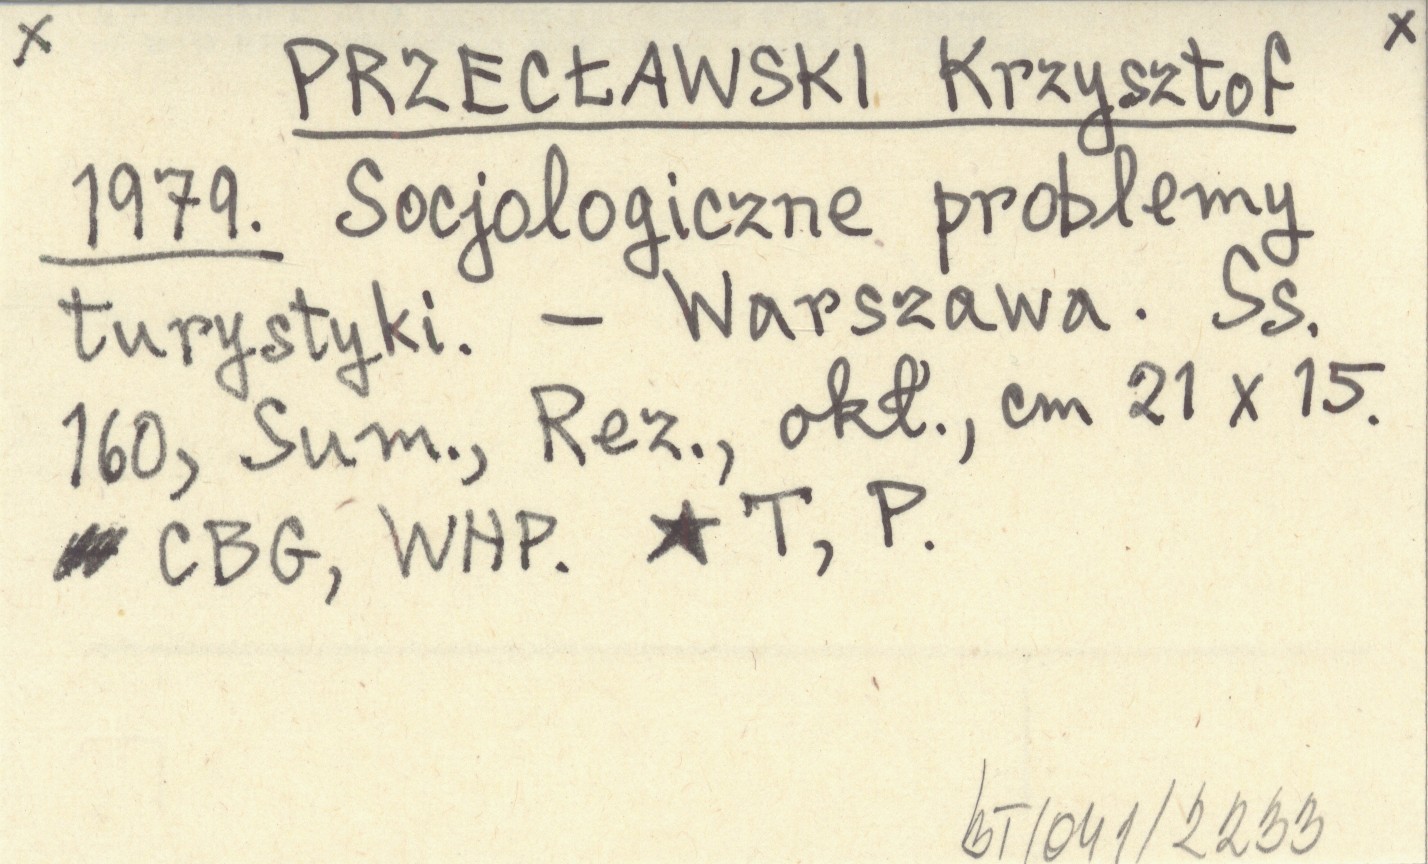 x x
PRZECŁAWSKI Krzysztof
1979. Socjologiczne problemy
turystyki. – Warszawa. Ss.
160, Sum., Rez., okł., cm 21 x 15.
CBG, WHP. ★ T, P.
BT/041/2233